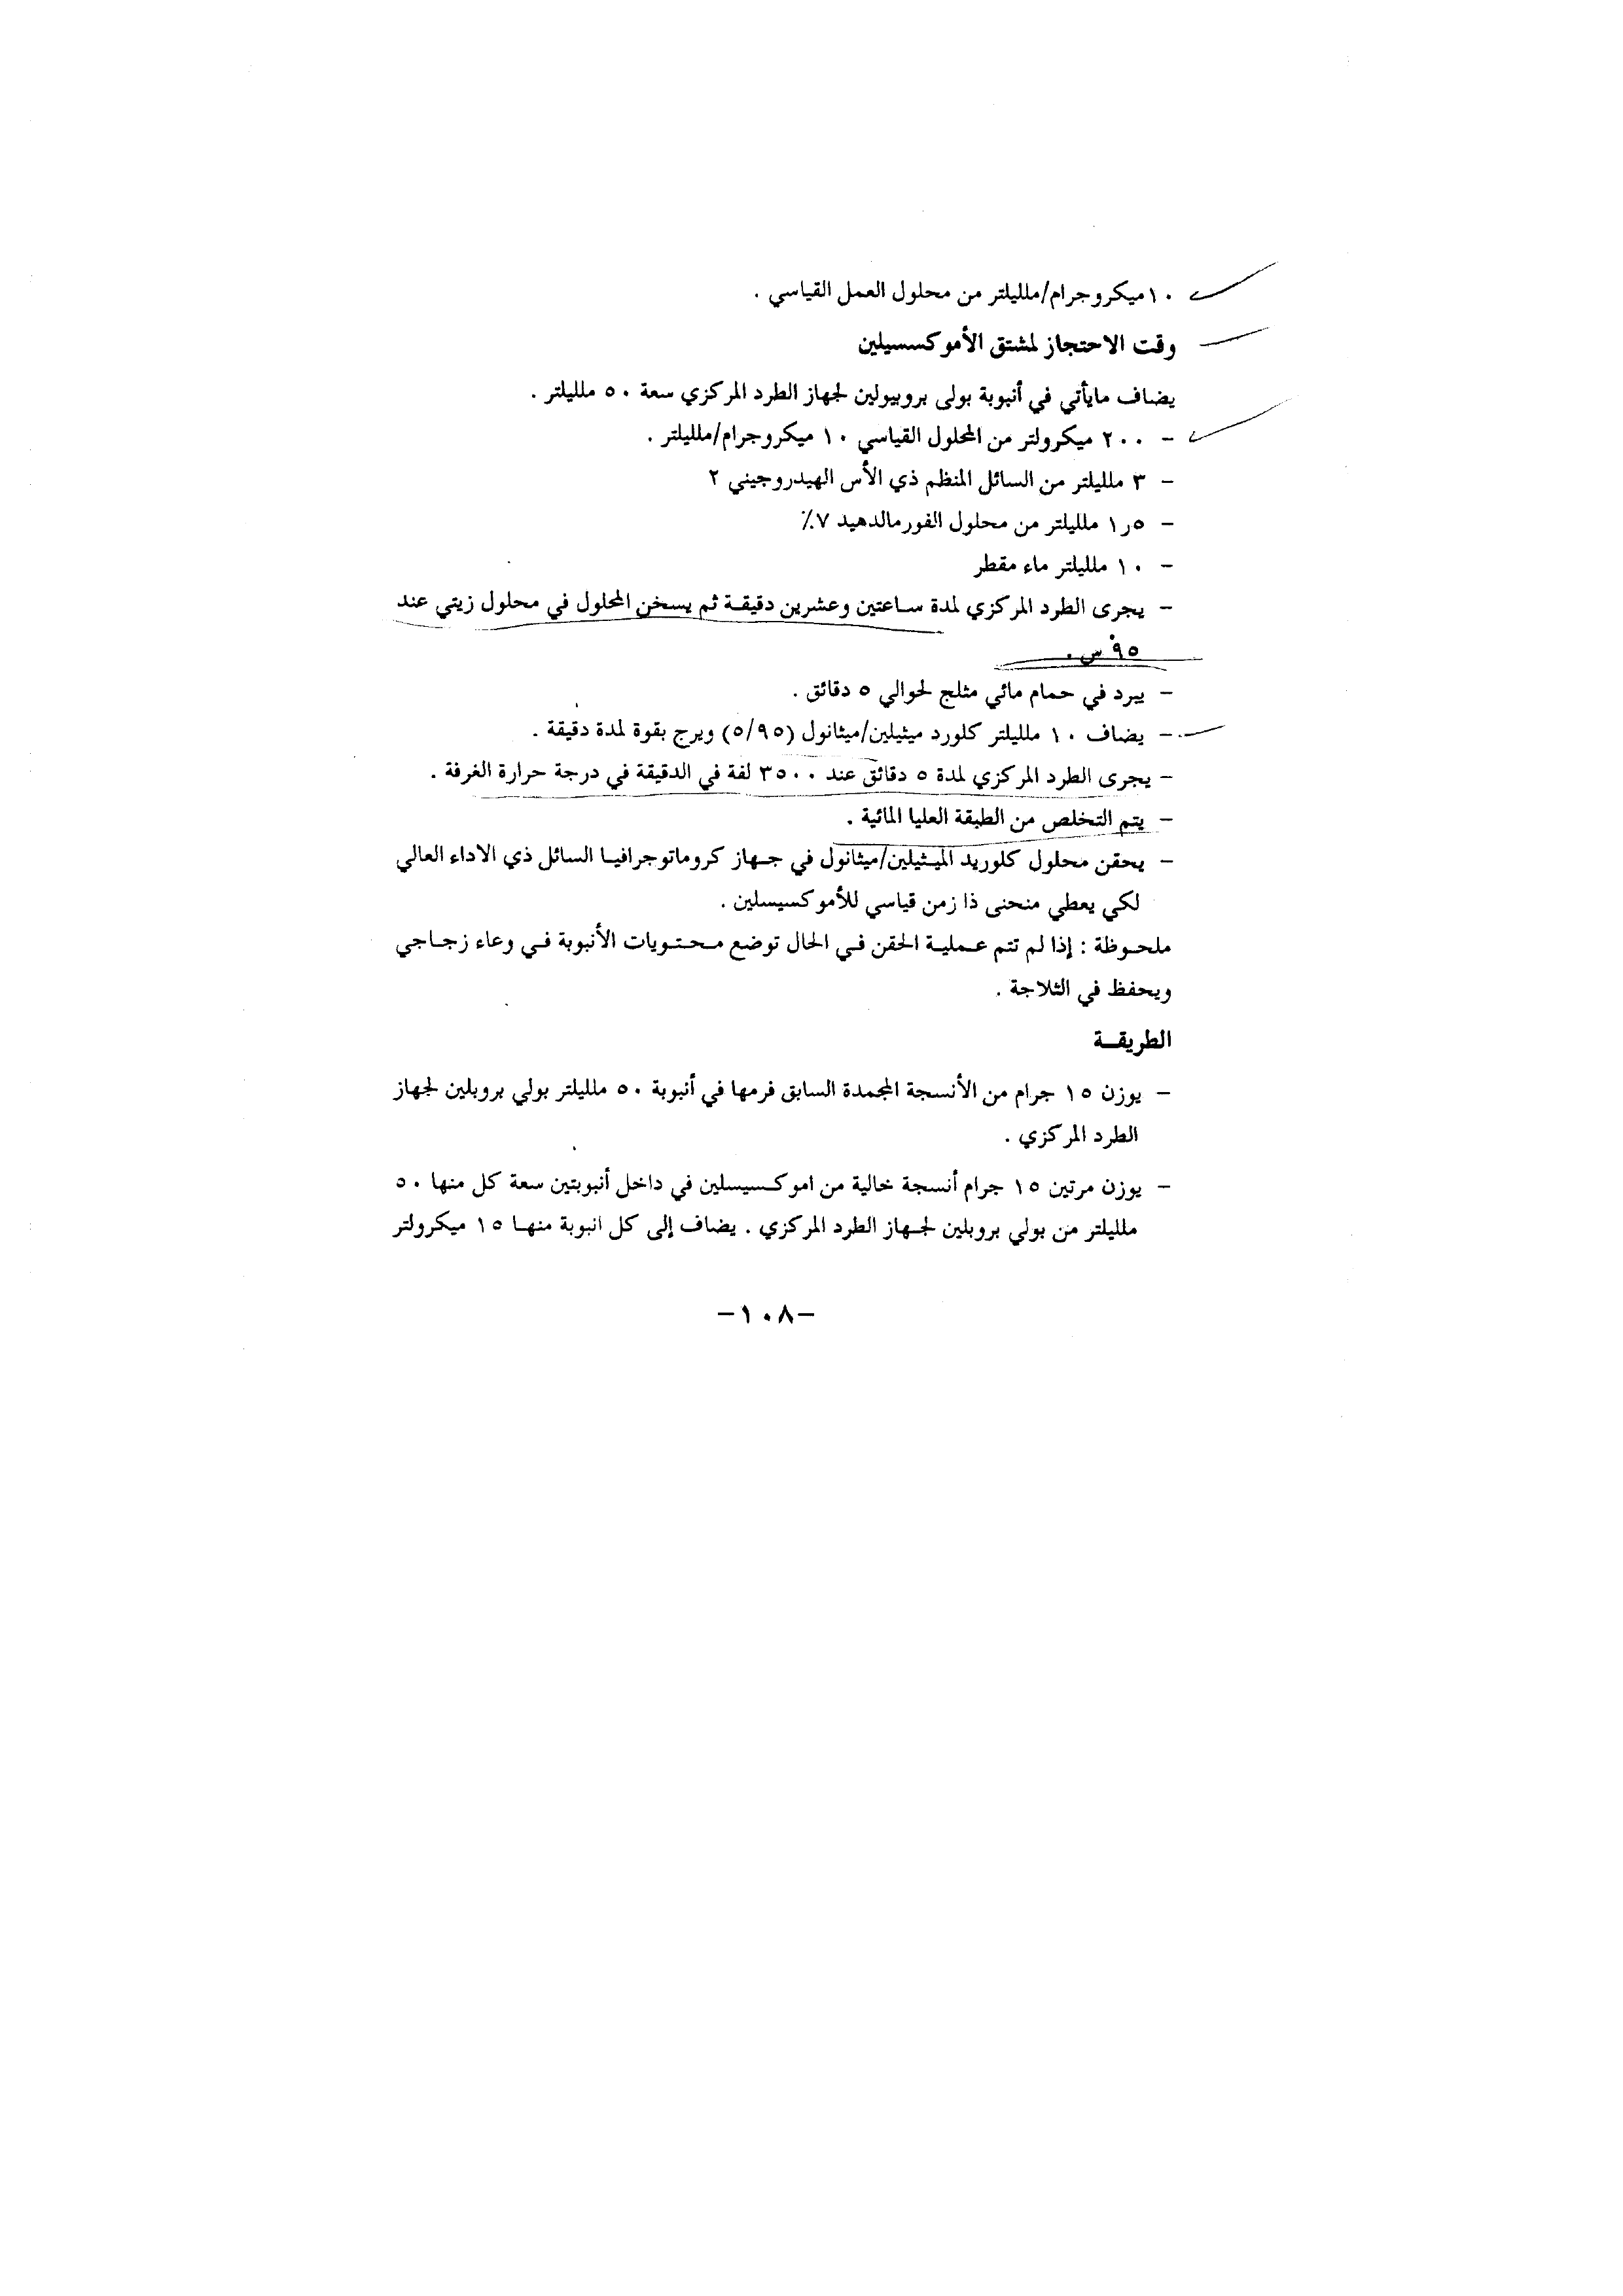 ١٠ميكروجرام/ملليلتر من محلول العمل القياسي .
وقت الاحتجاز لمشتق الأموكسسيلين
يضاف مايأتي في أنبوبة بولى بروبيولين لجهاز الطرد المركزي سعة ٥٠ ملليلتر .
- ٢٠٠ ميكرولتر من المحلول القياسي ١٠ ميكروجرام/ملليلتر .
- ٣ ملليلتر من السائل المنظم ذي الأس الهيدروجيني ٢
- ١٫٥ ملليلتر من محلول الفورمالدهيد ٧٪
- ١٠ ملليلتر ماء مقطر
- يجرى الطرد المركزي لمدة ساعتين وعشرين دقيقة ثم يسخن المحلول في محلول زيتي عند
٩٥° س .
- يبرد في حمام مائي مثلج لحوالي ٥ دقائق .
- يضاف ١٠ ملليلتر كلورد ميثيلين/ميثانول (٥/٩٥) ويرج بقوة لمدة دقيقة .
- يجرى الطرد المركزي لمدة ٥ دقائق عند ٣٥٠٠ لفة في الدقيقة في درجة حرارة الغرفة .
- يتم التخلص من الطبقة العليا المائية .
- يحقن محلول كلوريد الميثيلين/ميثانول في جهاز كروماتوجرافيا السائل ذي الاداء العالي
لكي يعطي منحنى ذا زمن قياسي للأموكسيسلين .
ملحوظة : إذا لم تتم عملية الحقن في الحال توضع محتويات الأنبوبة في وعاء زجاجي
ويحفظ في الثلاجة .
الطريقة
- يوزن ١٥ جرام من الأنسجة المجمدة السابق فرمها في أنبوبة ٥٠ ملليلتر بولي بروبلين لجهاز
الطرد المركزي .
- يوزن مرتين ١٥ جرام أنسجة خالية من اموكسيسلين في داخل أنبوبتين سعة كل منها ٥٠
ملليلتر من بولي بروبلين لجهاز الطرد المركزي . يضاف إلى كل انبوبة منها ١٥ ميكرولتر
-١٠٨-